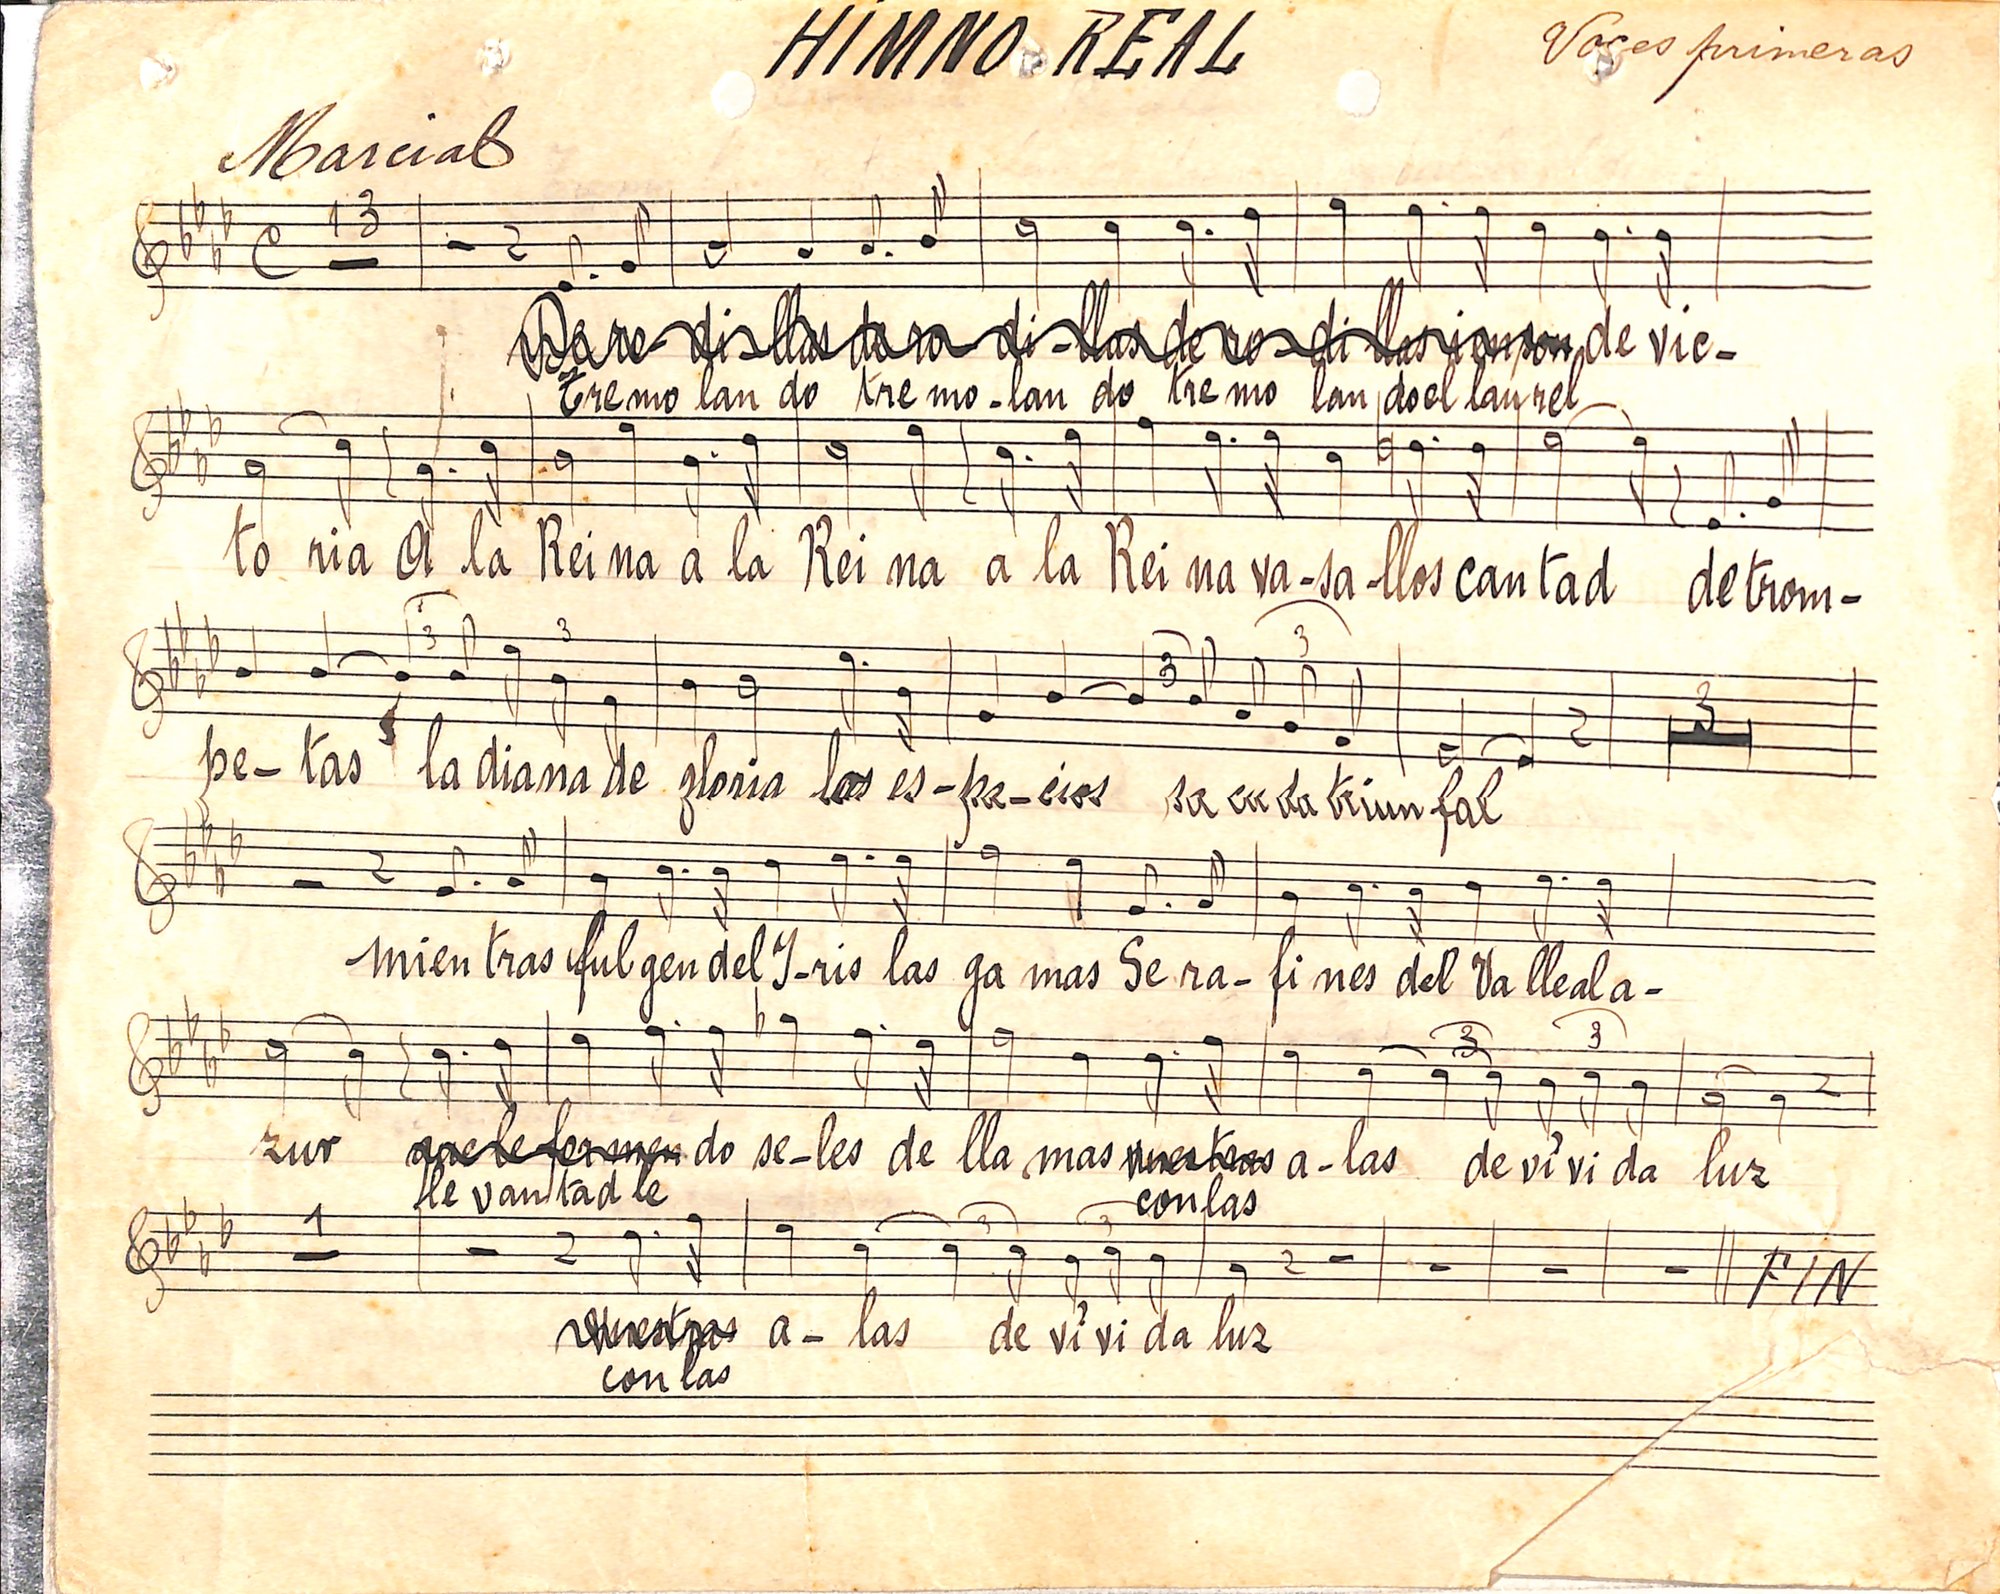 HIMNO REAL
Voces primeras
Marcial
13
De ro-di-llas de ro-di-llas de ro-di llas de vic-
tremo lan do tre mo-lan do tre mo lan do el laurel
to ria A la Rei na a la Rei na a la Rei na va-sa-llos cantad de trom-
3 3 3 3
pe-tas la diana de gloria los es-pa-cios sa cu da triun fal
3
mien tras fulgen del I-ris las ga mas Se ra-fi nes del Valle al a-
3 3
zur do se-les de lla mas vuestras a-las de ví vi da luz
le van tad le con las
1 3 3 FIN
vuestras a-las de ví vi da luz
con las